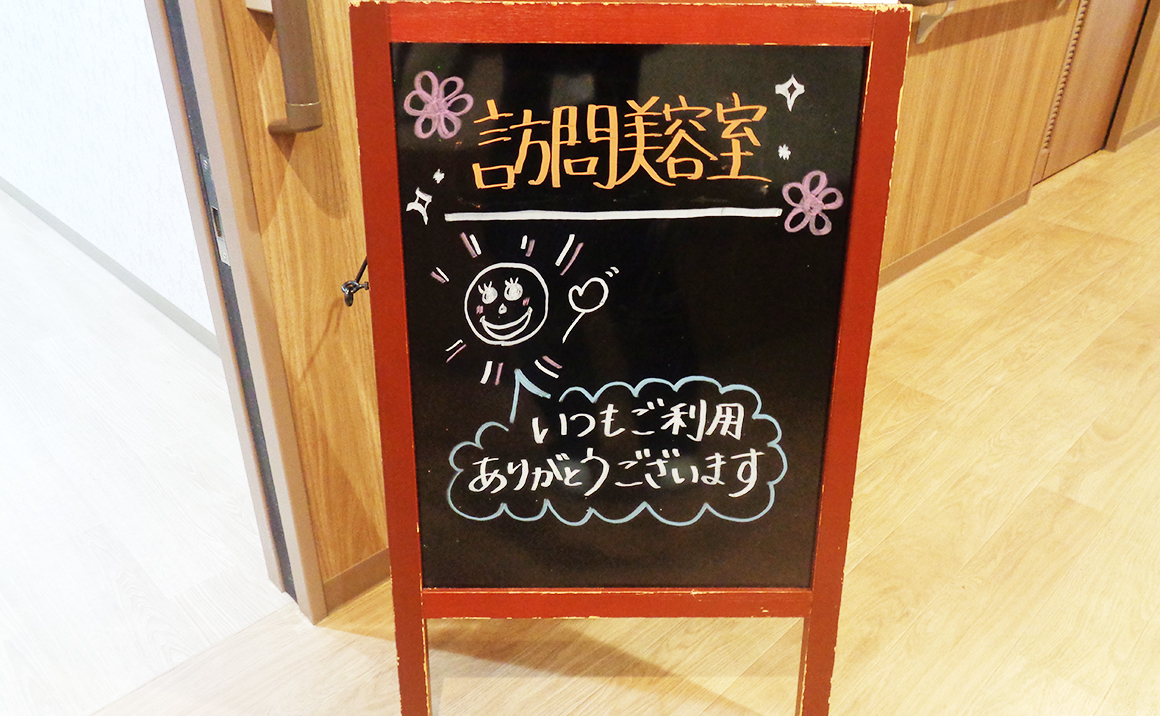 訪問美容室
いつもご利用
ありがとうございます